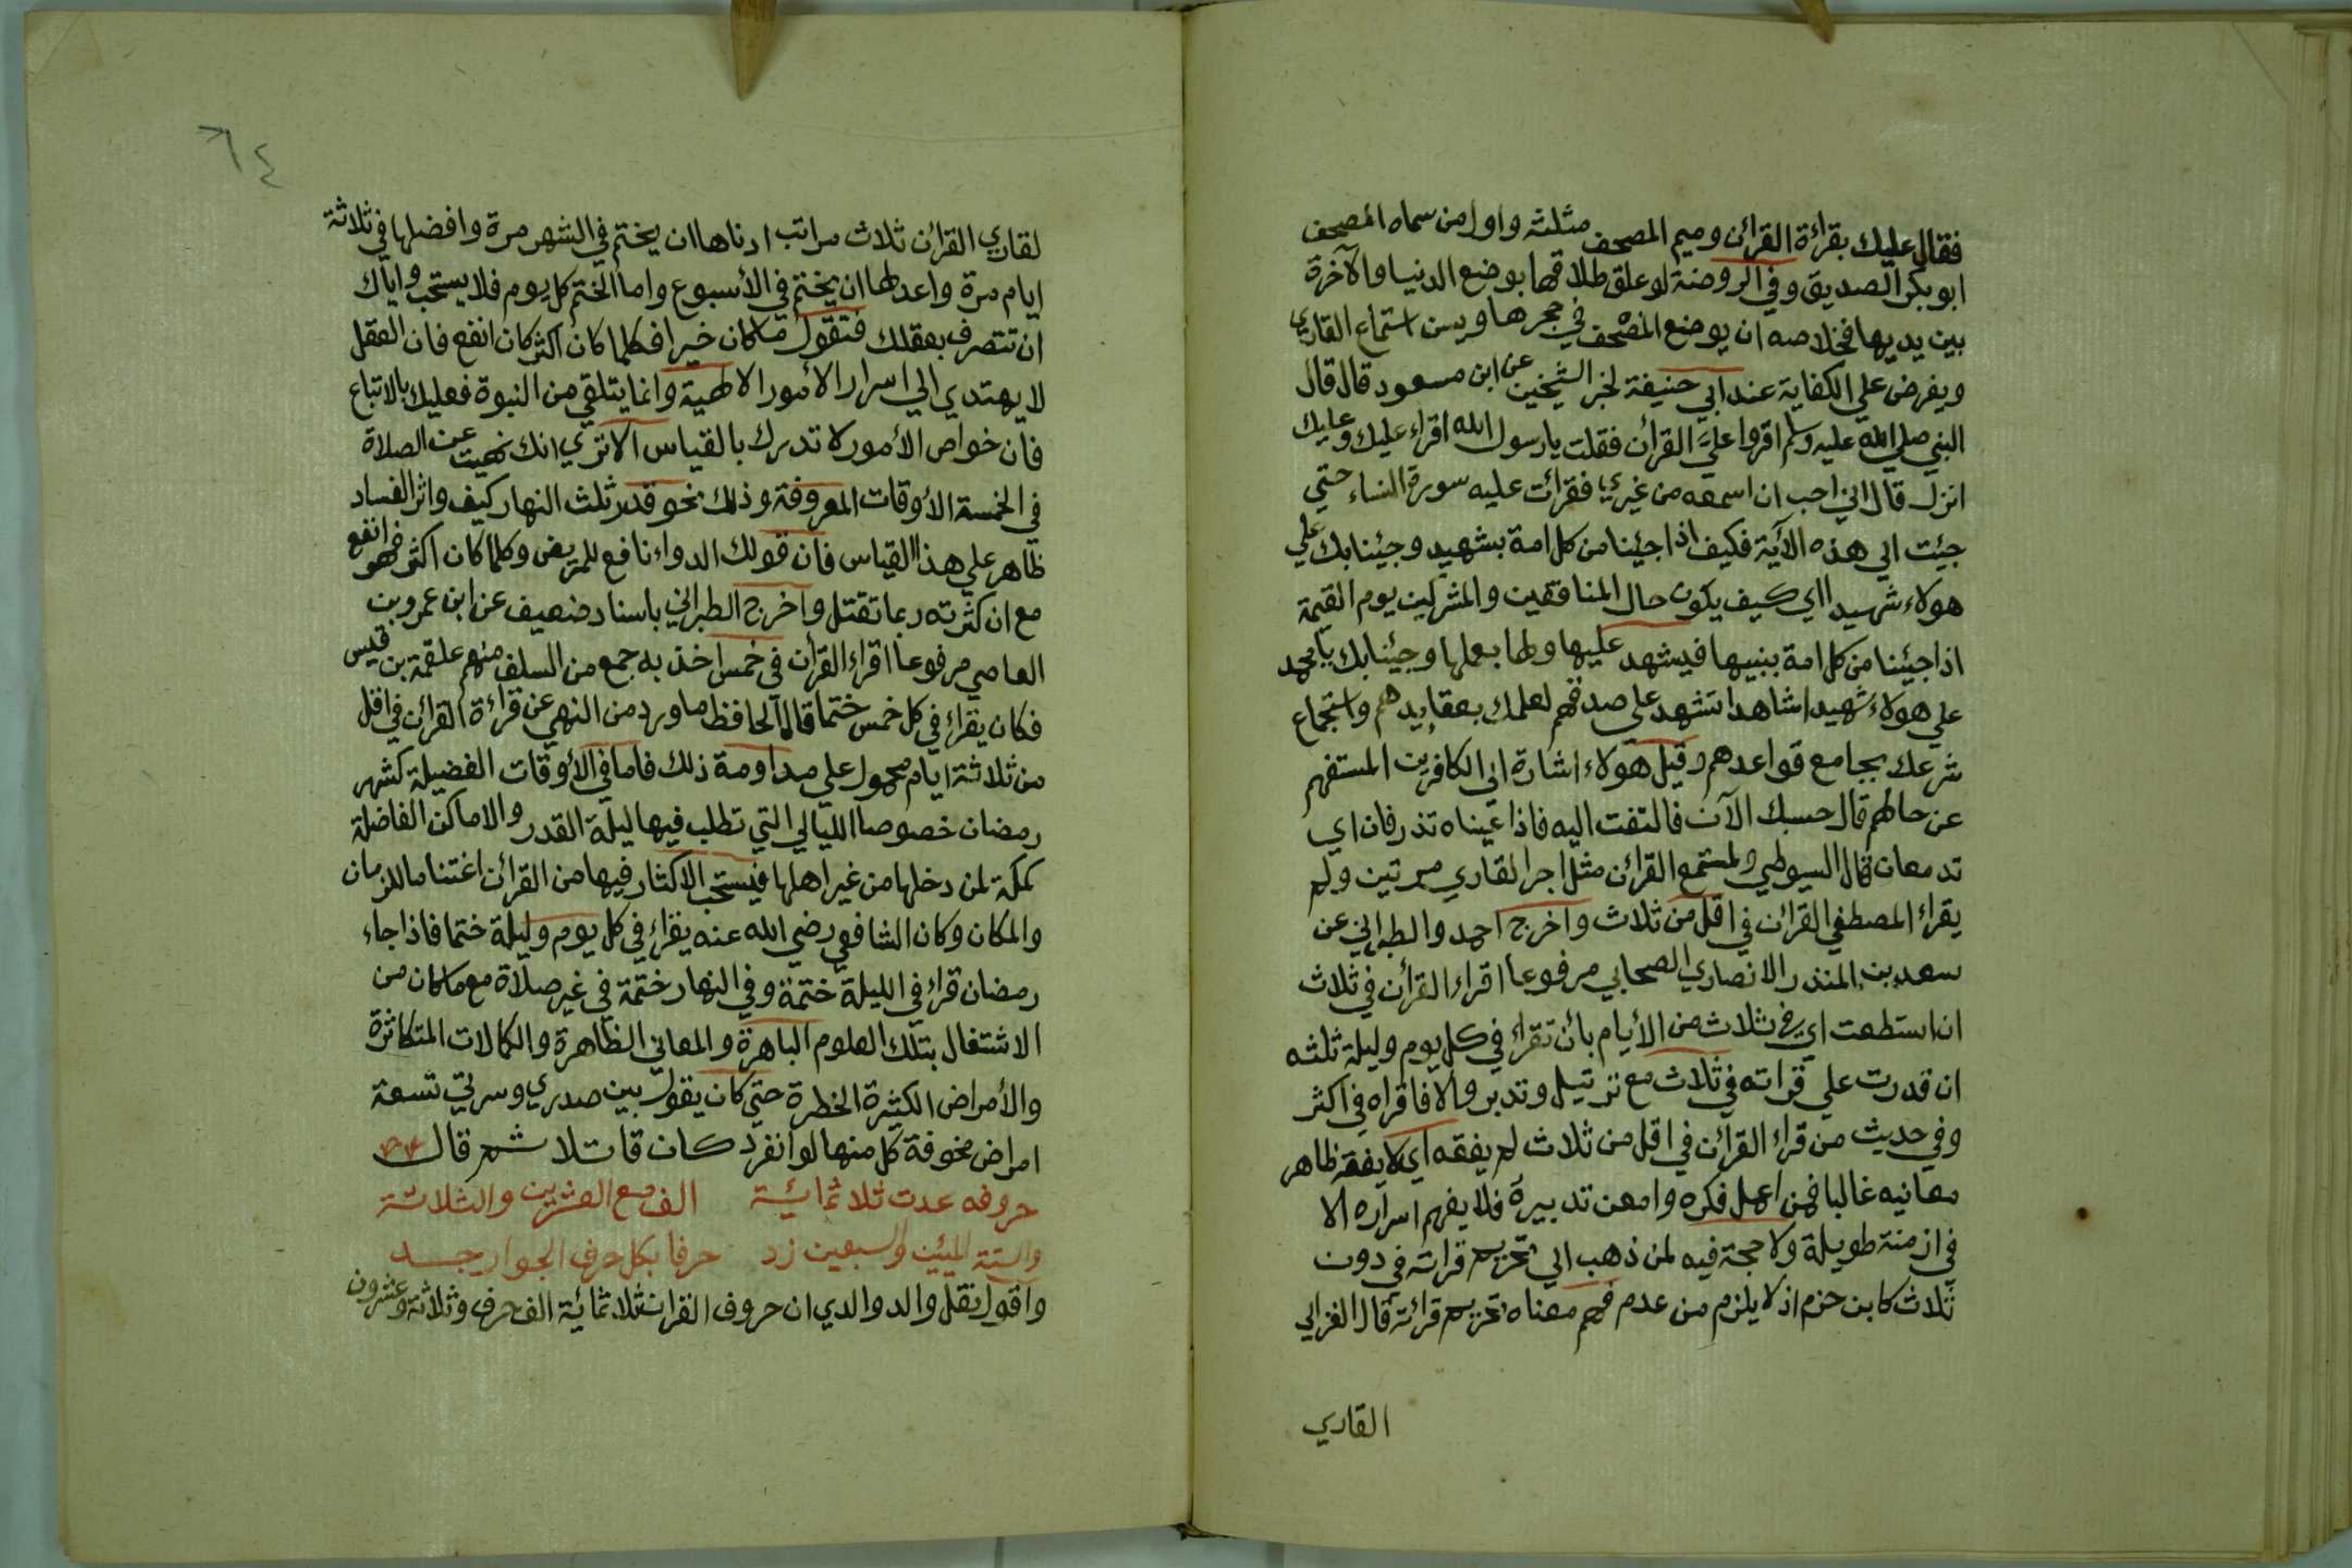 فقال عليك بقراءة القرائن وميم المصحف مثلثه واول من سماه المصحف
ابو بكر الصديق وفي الروضة لو علق طلاقها بوضع الدنيا والآخرة
بين يديها فخلاصه ان يوضع المصحف في حجرها ويسن استماع القاري
ويفرض علي الكفاية عند ابي حنيفة لخبر الشيخين عن ابن مسعود قال قال
النبي صلي الله عليه وسلم اقروا عليّ القرائن فقلت يا رسول الله اقراء عليك وعليك
انزل قال اني احب ان اسمعه من غيري فقرائت عليه سورة النساء حتي
جيئت الي هذه الآية فكيف اذا جيئنا من كل امة بشهيد وجيئنا بك علي
هولاء شهيدا اي كيف يكون حال المنافقين والمشركين يوم القيمة
اذا جيئنا من كل امة بنبيها فيشهد عليها ولها بعملها وجيئنا بك يا محمد
علي هولاء شهيدا شاهدا تشهد علي صدقهم لعلمك بعقايدهم واستجماع
شرعك بجامع قواعدهم وقيل هولاء اشارة الي الكافرين المستفهم
عن حالهم قال حسبك الآن فالتفت اليه فاذا عيناه تذرفان اي
تدمعان قال السيوطي ولمستمع القرائن مثل اجر القاري مرتين ولم
يقراء المصطفي القرائن في اقل من ثلاث واخرج احمد والطبراني عن
سعد بن المنذر الانصاري الصحابي مرفوعا اقراء القرأن في ثلاث
ان استطعت اي في ثلاث من الأيام بأن تقراء في كل يوم وليلة ثلثه
ان قدرت علي قراته في ثلاث مع ترتيل وتدبر والا فاقراه في اكثر
وفي حديث من قراء القرائن في اقل من ثلاث لم يفقه اي لا يفقه ظاهر
معانيه غالبا فمن اعمل فكره وامعن تدبيرة فلا يفهم اسراره الا
في ازمنة طويلة ولا حجة فيه لمن ذهب الي تحريم قراته في دون
ثلاث كابن حزم اذ لا يلزم من عدم فهم معناه تحريم قرائة قال الغزالي
القاري
٦٤
لقاري القرائن ثلاث مراتب ادناها ان يختم في الشهر مرة وافضلها في ثلاثة
ايام مرة واعدلها ان يختم في الأسبوع واما الختم كل يوم فلا يستحب واياك
ان تتصرف بعقلك فتقول ما كان خيرا فكلما كان اكثر كان انفع فان العقل
لا يهتدي الي اسرار الأمور الالهية وانما يتلقي من النبوة فعليك بالاتباع
فان خواص الأمور لا تدرك بالقياس الا تري انك نهيت عن الصلاة
في الخمسة الأوقات المعروفة وذلك نحو قدر ثلث النهار كيف واثر الفساد
ظاهر علي هذا القياس فان قولك الدواء نافع للمريض وكلما كان اكثر فهو انفع
مع ان كثرته ربما تقتل واخرج الطبراني باسناد ضعيف عن ابن عمرو بن
العاصي مرفوعا اقراء القرأن في خمس اخذ به جمع من السلف منهم علقمة بن قيس
فكان يقراء في كل خمس ختما قال الحافظ ما ورد من النهي عن قراءة القرائن في اقل
من ثلاثة ايام محمول علي مداومة ذلك فاما في الأوقات الفضيلة كشهر
رمضان خصوصا الليالي التي تطلب فيها ليلة القدر والاماكن الفاضلة
كمكة لمن دخلها من غير اهلها فيستحب الاكثار فيها من القرائن اغتناما للزمان
والمكان وكان الشافعي رضي الله عنه يقراء في كل يوم وليلة ختما فاذا جاء
رمضان قراء في الليلة ختمة وفي النهار ختمة في غير صلاة مع ما كان من
الاشتغال بتلك العلوم الباهرة والمعاني الظاهرة والكمالات المتكاثرة
والأمراض الكثيرة الخطرة حتي كان يقول بين صدري وسرتي تسعة
امراض مخوفة كل منها لو انفرد كان قاتلا شم قال
حروفه عدت ثلاثمائية الف مع العشرين والثلاثة
والستة الميئين والسبعين زد حرفا بكل حرف الجوار جــد
واقول نقل والد والدي ان حروف القران ثلاثمائية الف حرف وثلاثة وعشرون